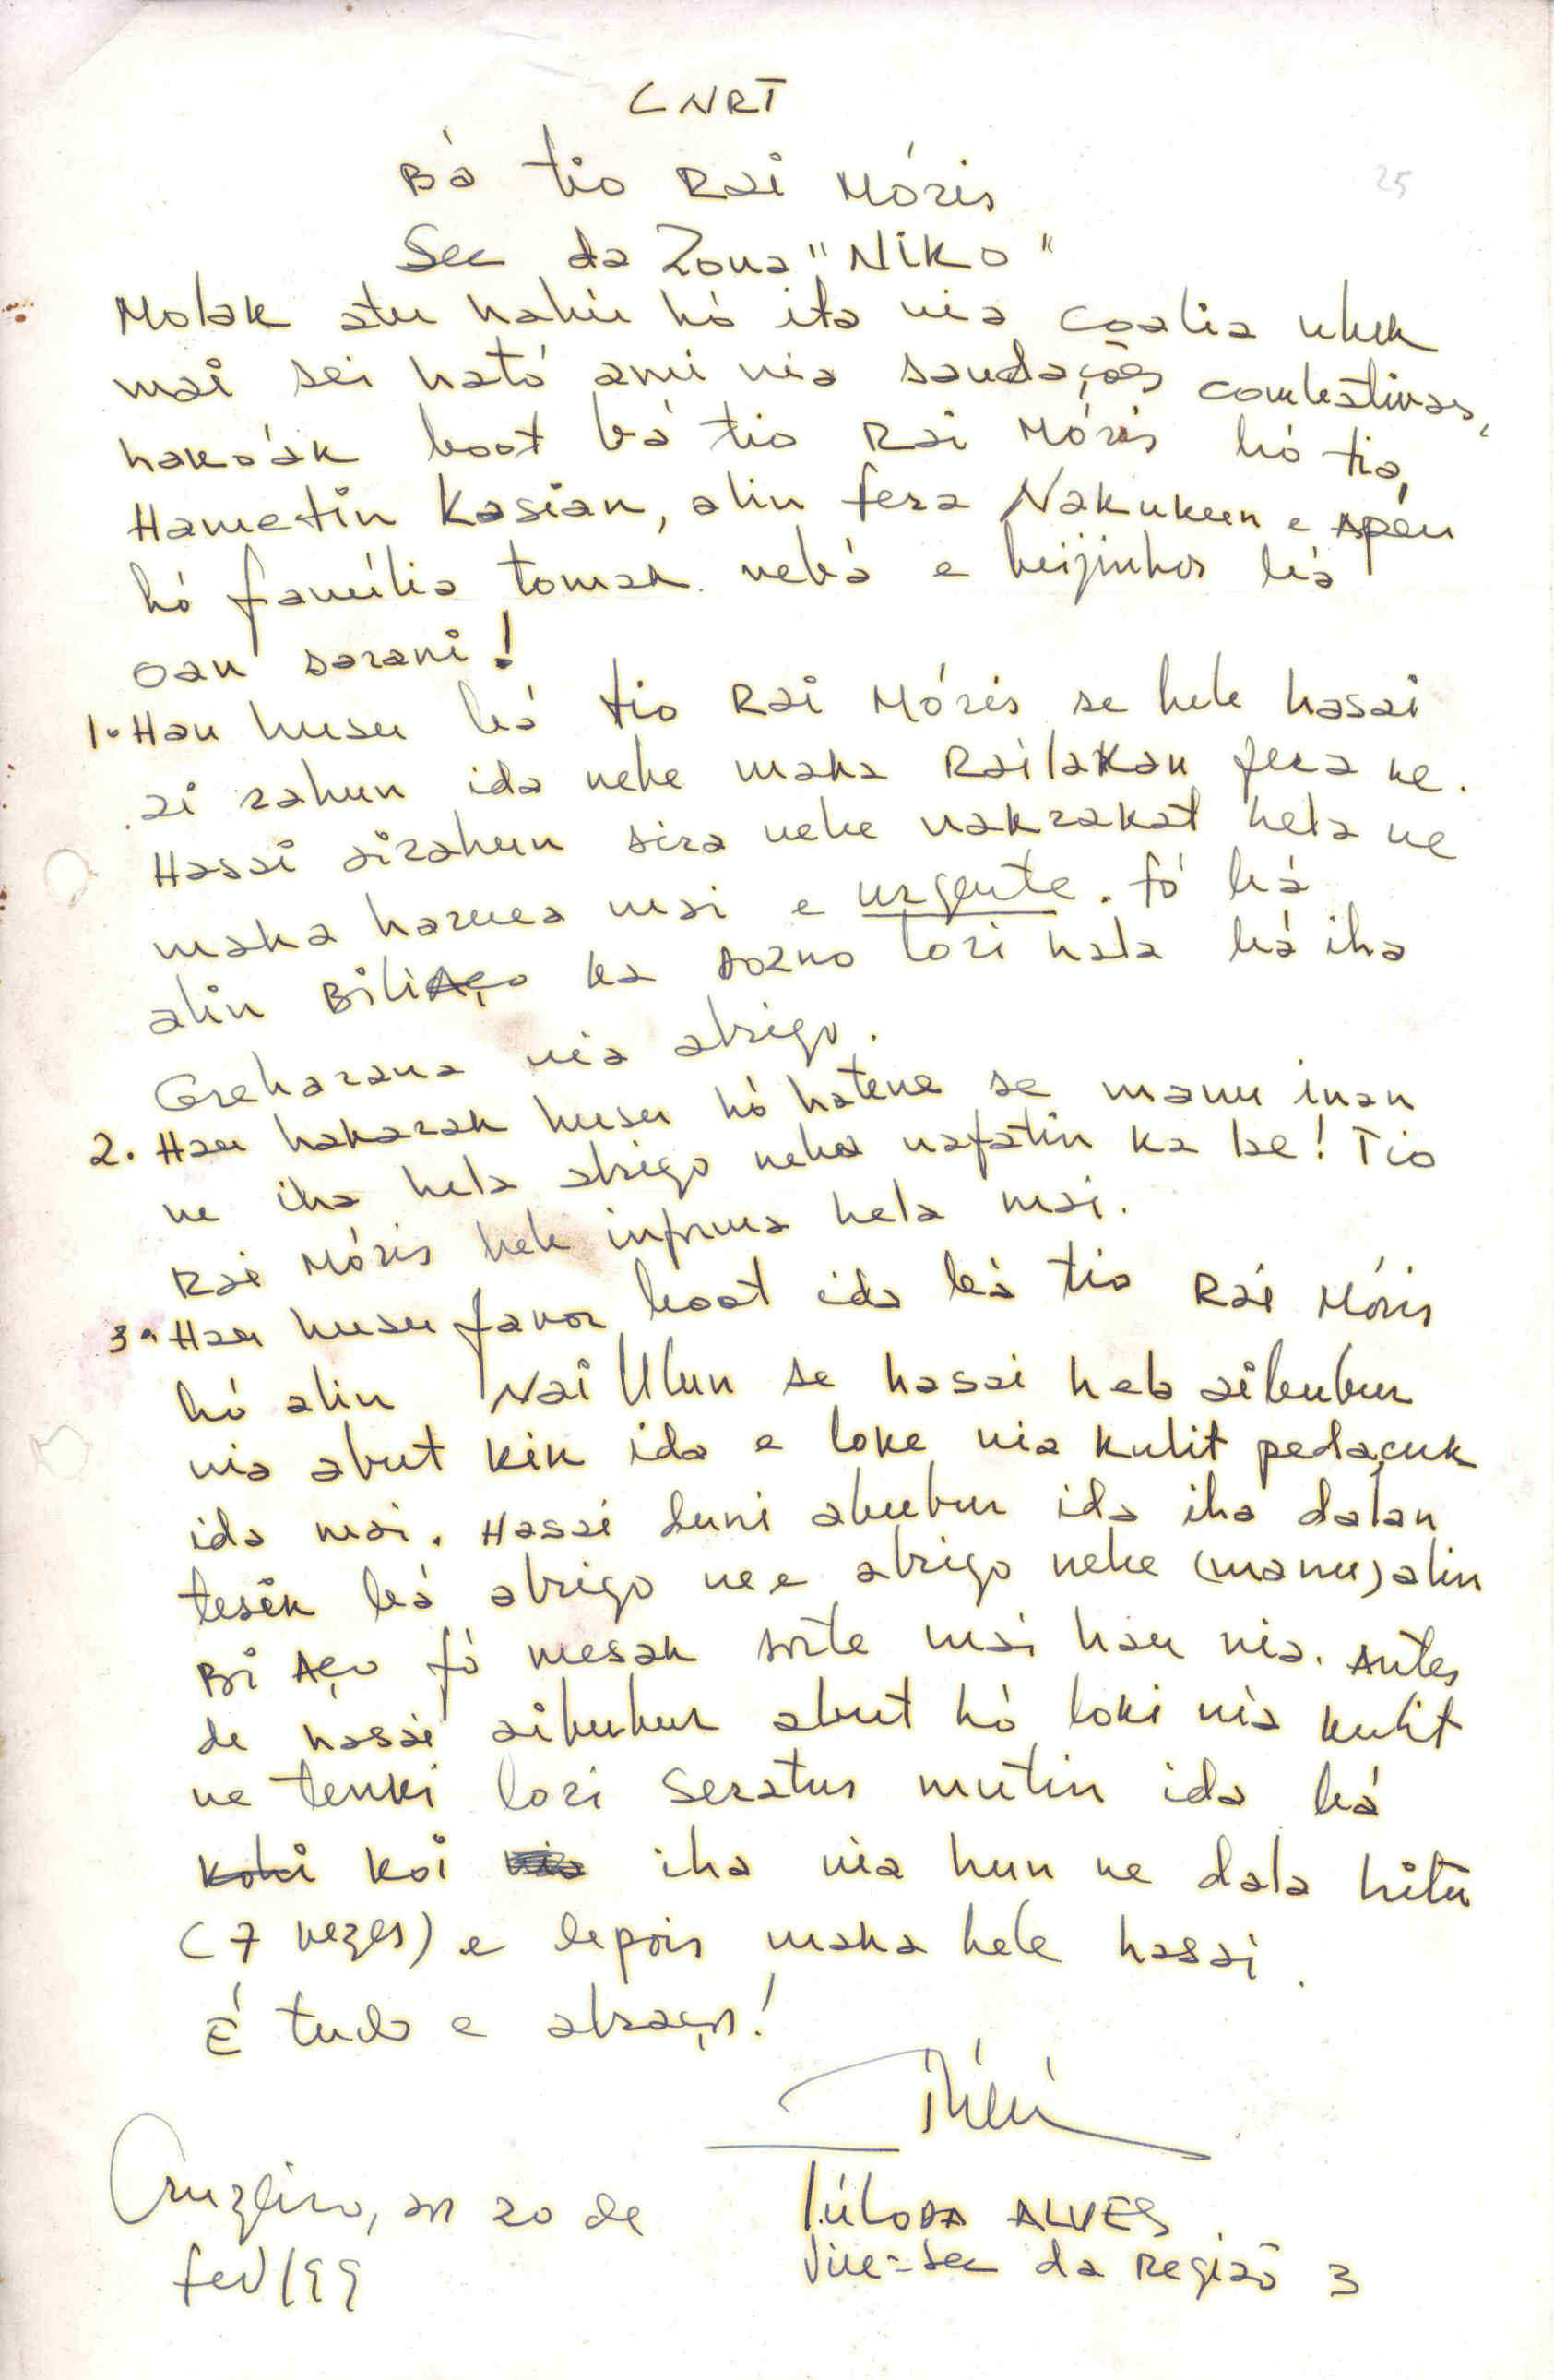 CNRT
25
Bá tio Rai Móris
Sec da Zona "Niko"
Molak atu hahú hó ita nia coalia uluk
mai sei ható ami nia saudações combativas,
hako'ak boot bá tio Rai Móris hó tia,
Hametin Kasian, alin fera Nakukun e
hó família tomak nebá e beijinhos bá
oan sarani!
1. Hau husu bá tio Rai Móris se bele hasai
ai rahun ida nebe maka Railakan fera ne.
Hasai airahun sira nebe nakrakat hela ne
maka haruca mai e urgente. fó bá
alin Bili Aço ka lori hala bá iha
Greharana nia abrigo.
2. Hau hakarak husu hó hatene se manu inan
ne iha hela abrigo neba nafatin ka lae! Tio
Rai Móris bele informa hela mai.
3. Hau husu favor boot ida bá tio Rai Móris
hó alin Nai Ulun se hasai hela aibubur
nia abut kik ida e loke nia kulit pedaçuk
ida mai. Hasai duni abubur ida iha dalan
tesik bá abrigo ne e abrigo nebe (manu) alin
Bi Aço fó mesak sorte mai hau nia. Antes
de hasai aibubur abut hó loki nia kulit
ne tenki lori seratus mutin ida bá
koi iha nia hun ne dala hitu
(7 vezes) e depois maka bele hasai.
É tudo e abraços!
Lúloda ALVES
Vice-Sec da Região 3
Cruzeiro, aos 20 de
fev/99